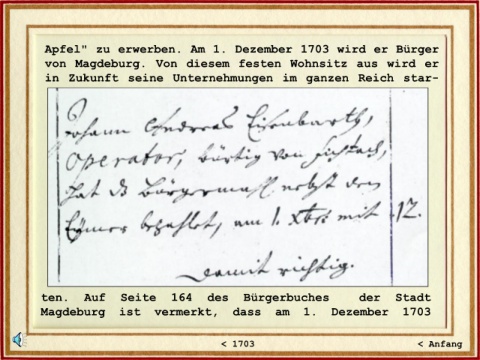 Apfel" zu erwerben. Am 1. Dezember 1703 wird er Bürger
von Magdeburg. Von diesem festen Wohnsitz aus wird er
in Zukunft seine Unternehmungen im ganzen Reich star-
Johann Andreas Eisenbarth,
Operator, bürtig von
hat d Bürgermahl nebst den
Eymer bezahlet, am 1. Xbr. mit 12.
damit richtig.
ten. Auf Seite 164 des Bürgerbuches der Stadt
Magdeburg ist vermerkt, dass am 1. Dezember 1703
< 1703
< Anfang